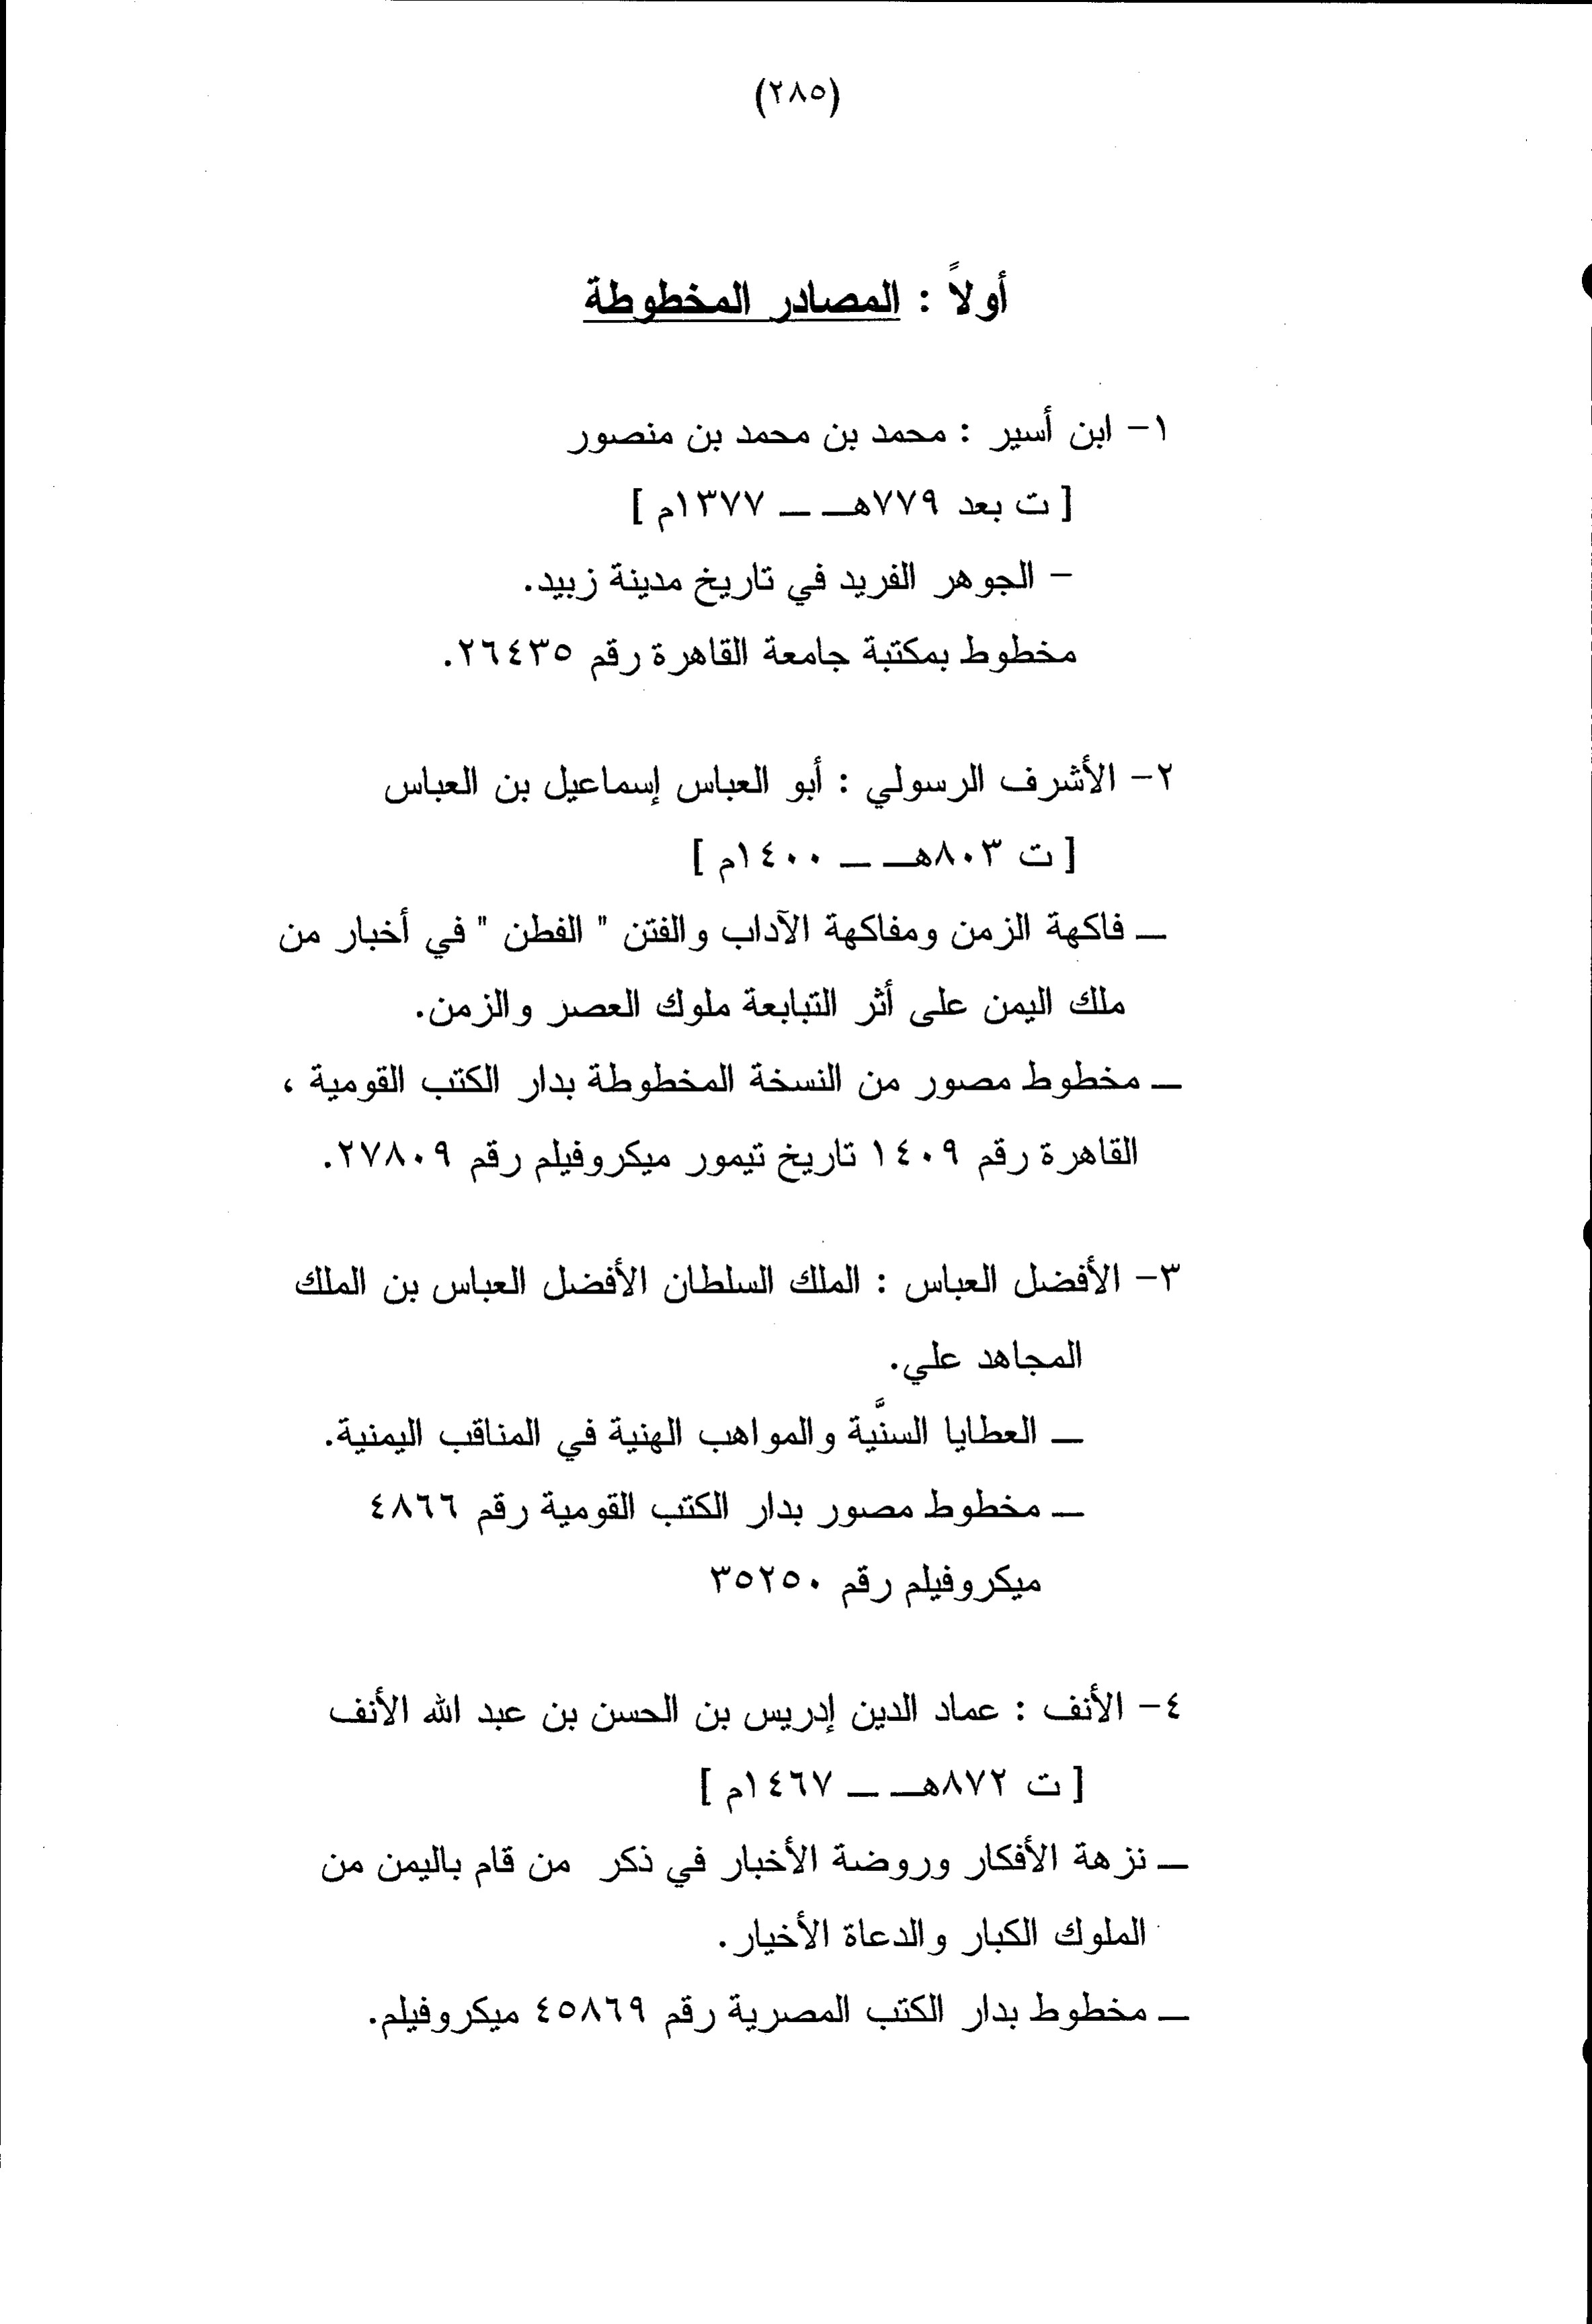 (٢٨٥)
أولاً : المصادر المخطوطة
١- ابن أسير : محمد بن محمد بن منصور
[ ت بعد ٧٧٩هـ ــ ١٣٧٧م ]
- الجوهر الفريد في تاريخ مدينة زبيد.
مخطوط بمكتبة جامعة القاهرة رقم ٢٦٤٣٥.
٢- الأشرف الرسولي : أبو العباس إسماعيل بن العباس
[ ت ٨٠٣هـ ــ ١٤٠٠م ]
ــ فاكهة الزمن ومفاكهة الآداب والفتن " الفطن " في أخبار من
ملك اليمن على أثر التبابعة ملوك العصر والزمن.
ــ مخطوط مصور من النسخة المخطوطة بدار الكتب القومية ،
القاهرة رقم ١٤٠٩ تاريخ تيمور ميكروفيلم رقم ٢٧٨٠٩.
٣- الأفضل العباس : الملك السلطان الأفضل العباس بن الملك
المجاهد علي.
ــ العطايا السنَّية والمواهب الهنية في المناقب اليمنية.
ــ مخطوط مصور بدار الكتب القومية رقم ٤٨٦٦
ميكروفيلم رقم ٣٥٢٥٠
٤- الأنف : عماد الدين إدريس بن الحسن بن عبد الله الأنف
[ ت ٨٧٢هـ ــ ١٤٦٧م ]
ــ نزهة الأفكار وروضة الأخبار في ذكر من قام باليمن من
الملوك الكبار والدعاة الأخيار.
ــ مخطوط بدار الكتب المصرية رقم ٤٥٨٦٩ ميكروفيلم.